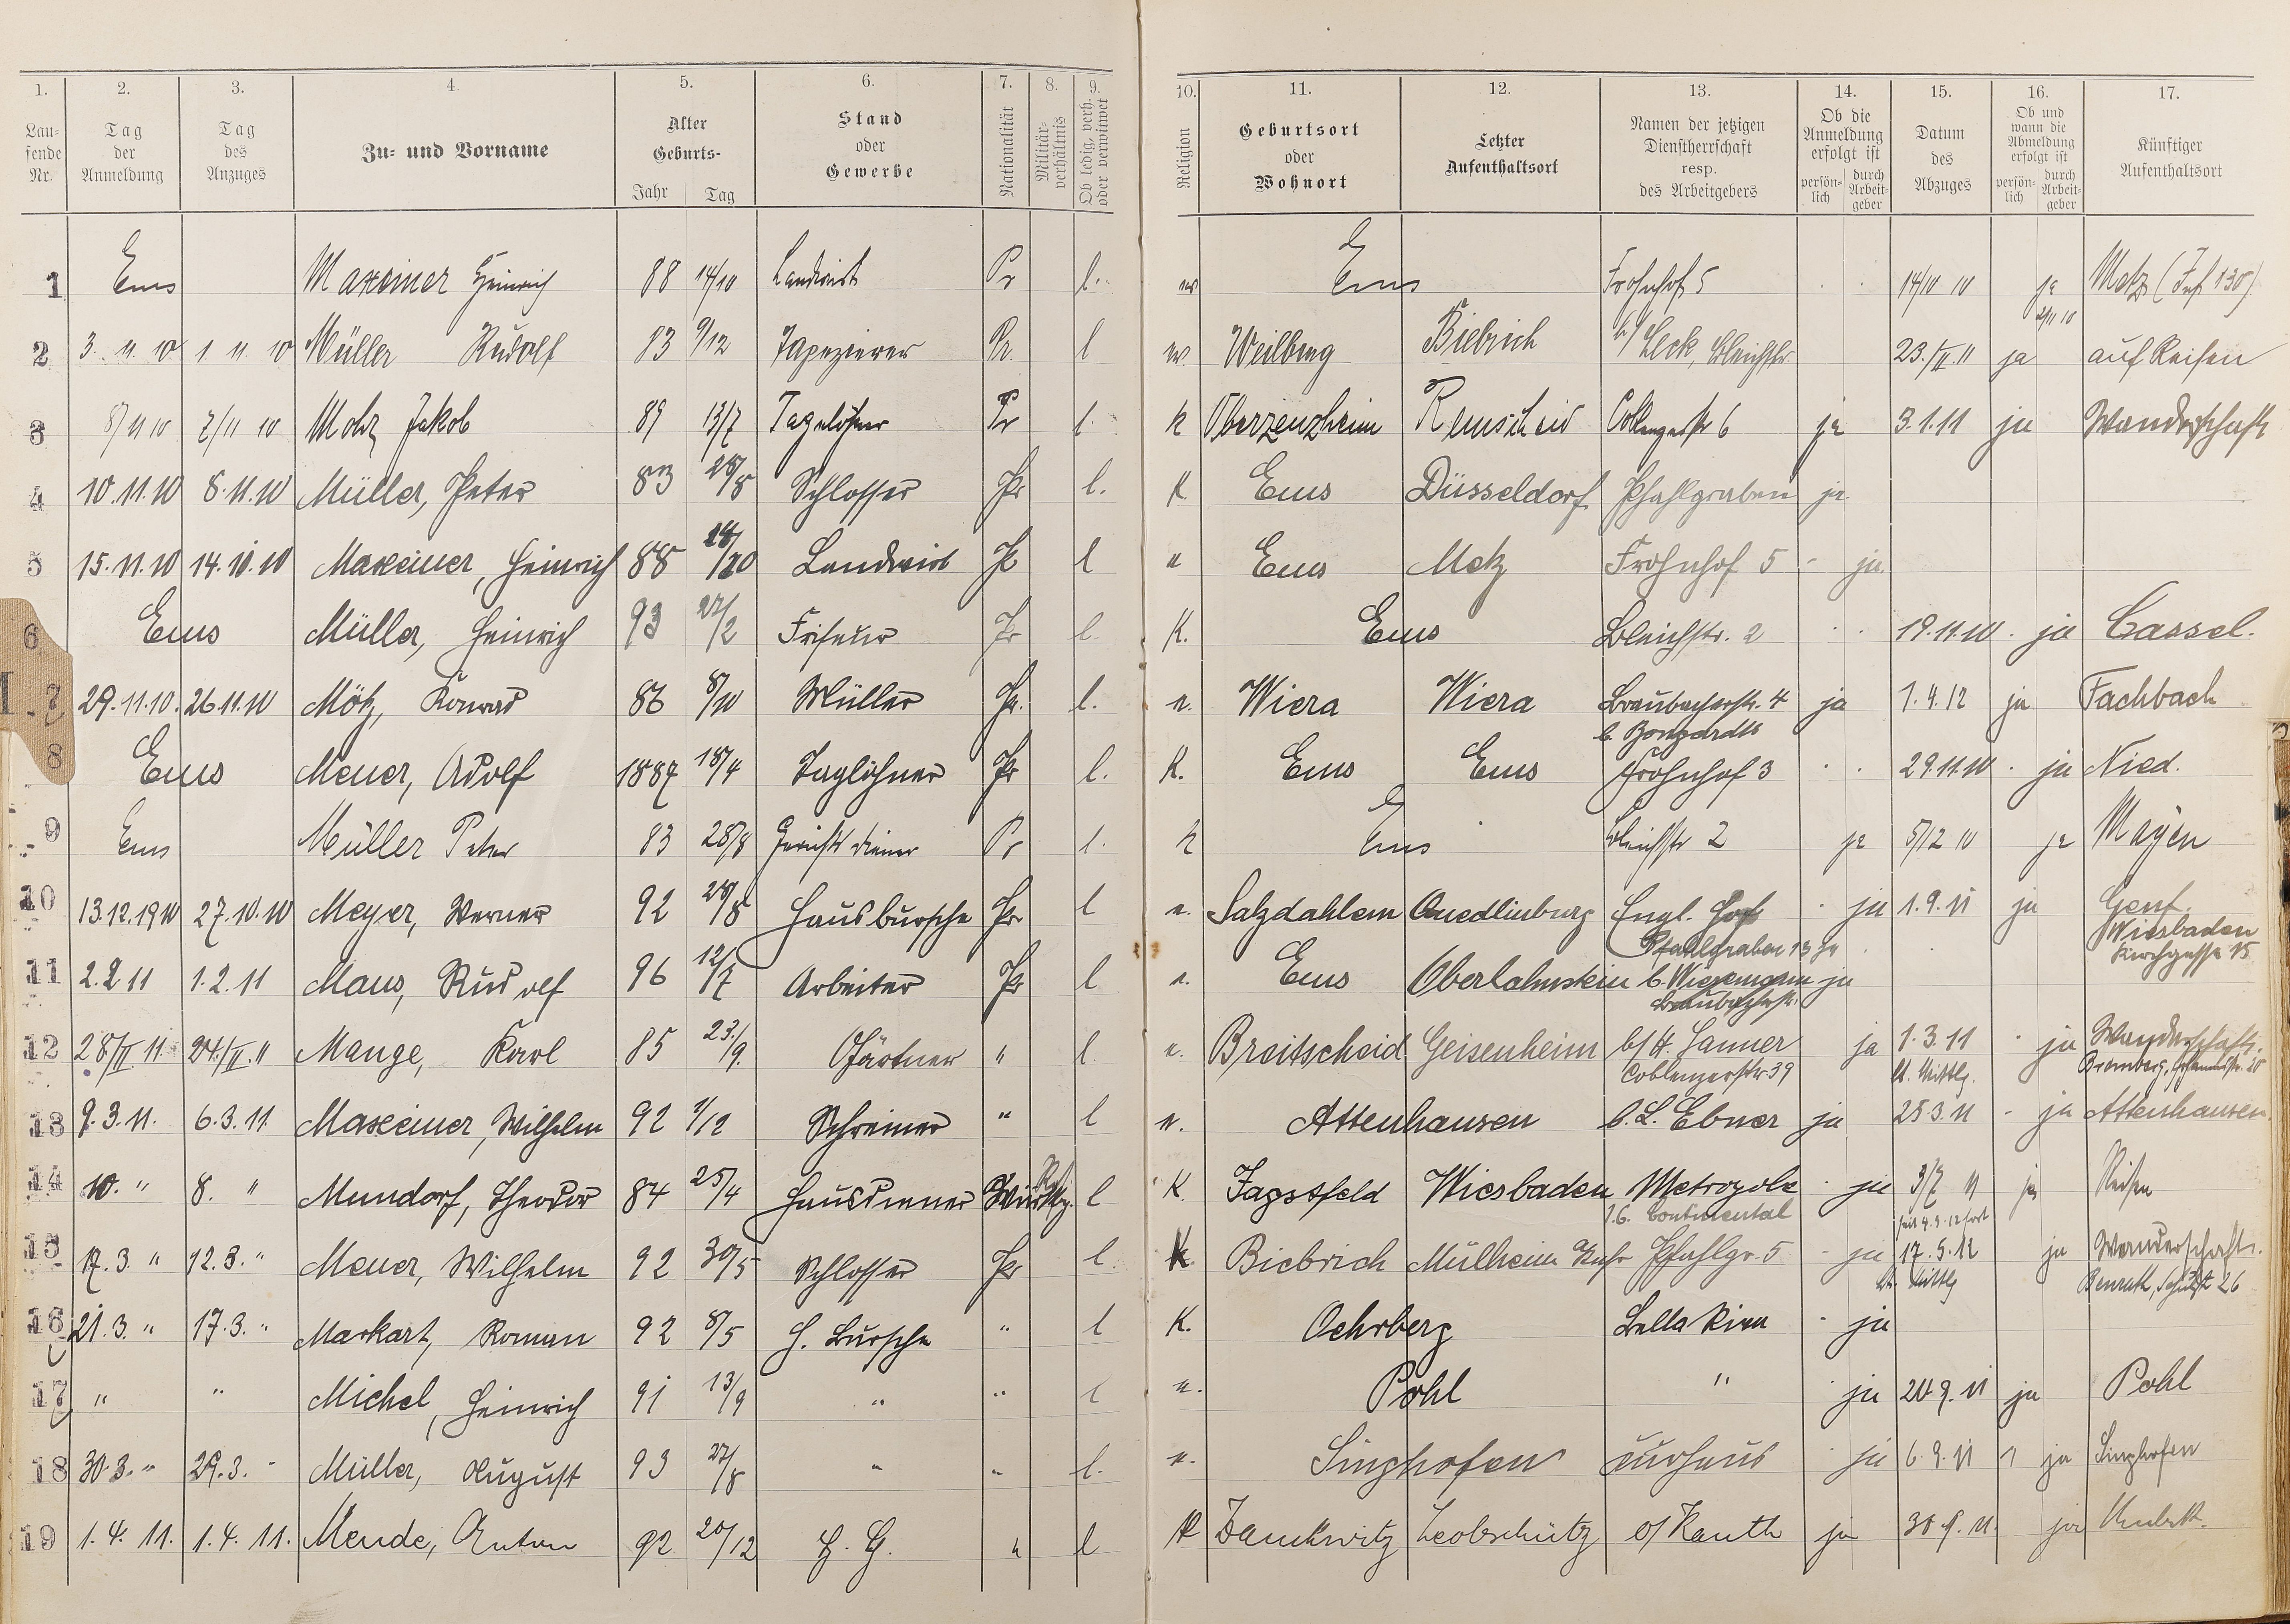 1. 2. 3. 4. 5. 6. 7. 8. 9. 10. 11. 12. 13. 14. 15. 16. 17.
Lau-
fende
Nr.
Tag
der
Anmeldung
Tag
des
Anzuges
Zu- und Vorname
Alter
Geburts-
Jahr Tag
Stand
oder
Gewerbe
Nationalität
Militär-
verhältnis
Ob ledig, verh.
oder verwitwet
Religion
Geburtsort
oder
Wohnort
Letzter
Aufenthaltsort
Namen der jetzigen
Dienstherrschaft
resp.
des Arbeitgebers
Ob die
Anmeldung
erfolgt ist
persön-
lich
durch
Arbeit-
geber
Datum
des
Abzuges
Ob und
wann die
Abmeldung
erfolgt ist
persön-
lich
durch
Arbeit-
geber
Künftiger
Aufenthaltsort
1 Ems Maxeiner Heinrich 88 14/10 Landwirt Pr l. Ems Frohnhof 5 14/10 10 ja Metz (Inf 130)
2/11 10
2 3. 11 10 1 11 10 Müller Rudolf 83 9/12 Tapezierer Pr. l Weilburg Biebrich b/ Leck, Bleichstr. 23./II.11 ja auf Reisen
3 8/11 10 7/11 10 Mohr Jakob 89 13/7 Tagelöhner Pr l. k Oberzeuzheim Remscheid Coblenzerstr 6 ja 3.1.11 ja Wanderschaft
4 10.11.10 8.11.10 Müller, Peter 83 28/8 Schlosser Pr l. K Ems Düsseldorf Pfahlgraben ja.
5 15.11.10 14.10.10 Maxeiner, Heinrich 88 /10 Landwirt Pr l Ems Metz Frohnhof 5 - ja.
6 Ems Müller, Heinrich 93 27/2 Friseur Pr l. K. Ems Bleichstr. 2 19.11.10 · ja Cassel.
7 29.11.10. 26.11.10 Mötz, Konrad 86 8/10 Müller Pr. l. Wiera Wiera Braubacherstr. 4 ja 1.4.12 ja Fachbach
8 Ems Meuer, Adolf 1887 18/4 Taglöhner Pr l. K. Ems Ems Frohnhof 3 29.11.10 · ja Nied.
9 Ems Müller Peter 83 28/8 Gerichtsdiener Pr l. k Ems Bleichstr 2 ja 5/12 10 ja Mayen
10 13.12.1910 27.10.10 Meyer, Werner 92 28/8 Hausbursche Pr l Salzdahlem Quedlinburg Engl. Hof · ja 1.9.11 ja Genf.
Pfahlgraben 13 ja Wiesbaden
Kirchgasse 15
11 2.2.11 1.2.11 Maus, Rudolf 96 12/7 Arbeiter Pr l Ems Oberlahnstein b. Wiesemann ja
Braubacherstr.
12 28/II 11. 24./II.11 Mange, Karl 85 23./9. Gärtner " l. Breitscheid Geisenheim b/ H. Sanner ja 1.3.11 · ja Wanderschaft.
Coblenzerstr 39 lt. Mittlg. Bromberg,
13 9.3.11. 6.3.11. Maxeiner, Wilhelm 92 1/12 Schreiner " l Attenhausen b. L. Ebner ja 25.3.11 - ja Attenhausen.
14 10. " 8. " Mundorf, Theodor 84 25/4 Hausdiener l K. Jagstfeld Wiesbaden Metropole · ja 3/7 11 ja Reisen
Continental seit 4.3.12 fort
15 17.3. " 12.3. " Meuer, Wilhelm 92 30/5 Schlosser Pr l. K. Biebrich Mülheim Ruhr Pfahlgr. 5 - ja 17.5.12 ja Wanderschaft.
lt. Mittlg Benrath, 26
16 21.3. " 17.3. " Markart, Roman 92 8/5 H. Bursche " l K. Oehrberg Bella Riva - ja
17 " " Michel, Heinrich 91 13/9 " " l Pohl " · ja 20.9.11 ja Pohl
18 30.3. " 29.3. " Müller, August 93 27/8 " " l. Singhofen Kurhaus · ja 6.9.11 ja Singhofen
19 1.4.11. 1.4.11. Mende, Anton 92 20/12 H. G. " l K Zauckwitz Leobschütz o/ Kauth ja 30.9.11. ja